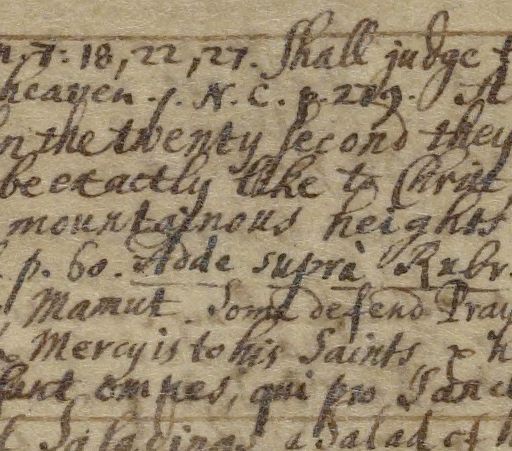 7. 18, 22, 27. Shall judge
heaven. N. C. p. 219.
In the twenty second they
be exactly like to Christ
mountainous heights
p. 60. Adde suprà Rubr.
Mamut. Some defend Pray
Mercy is to his Saints, &
sunt omnes, qui pro Sanc
a Salad of